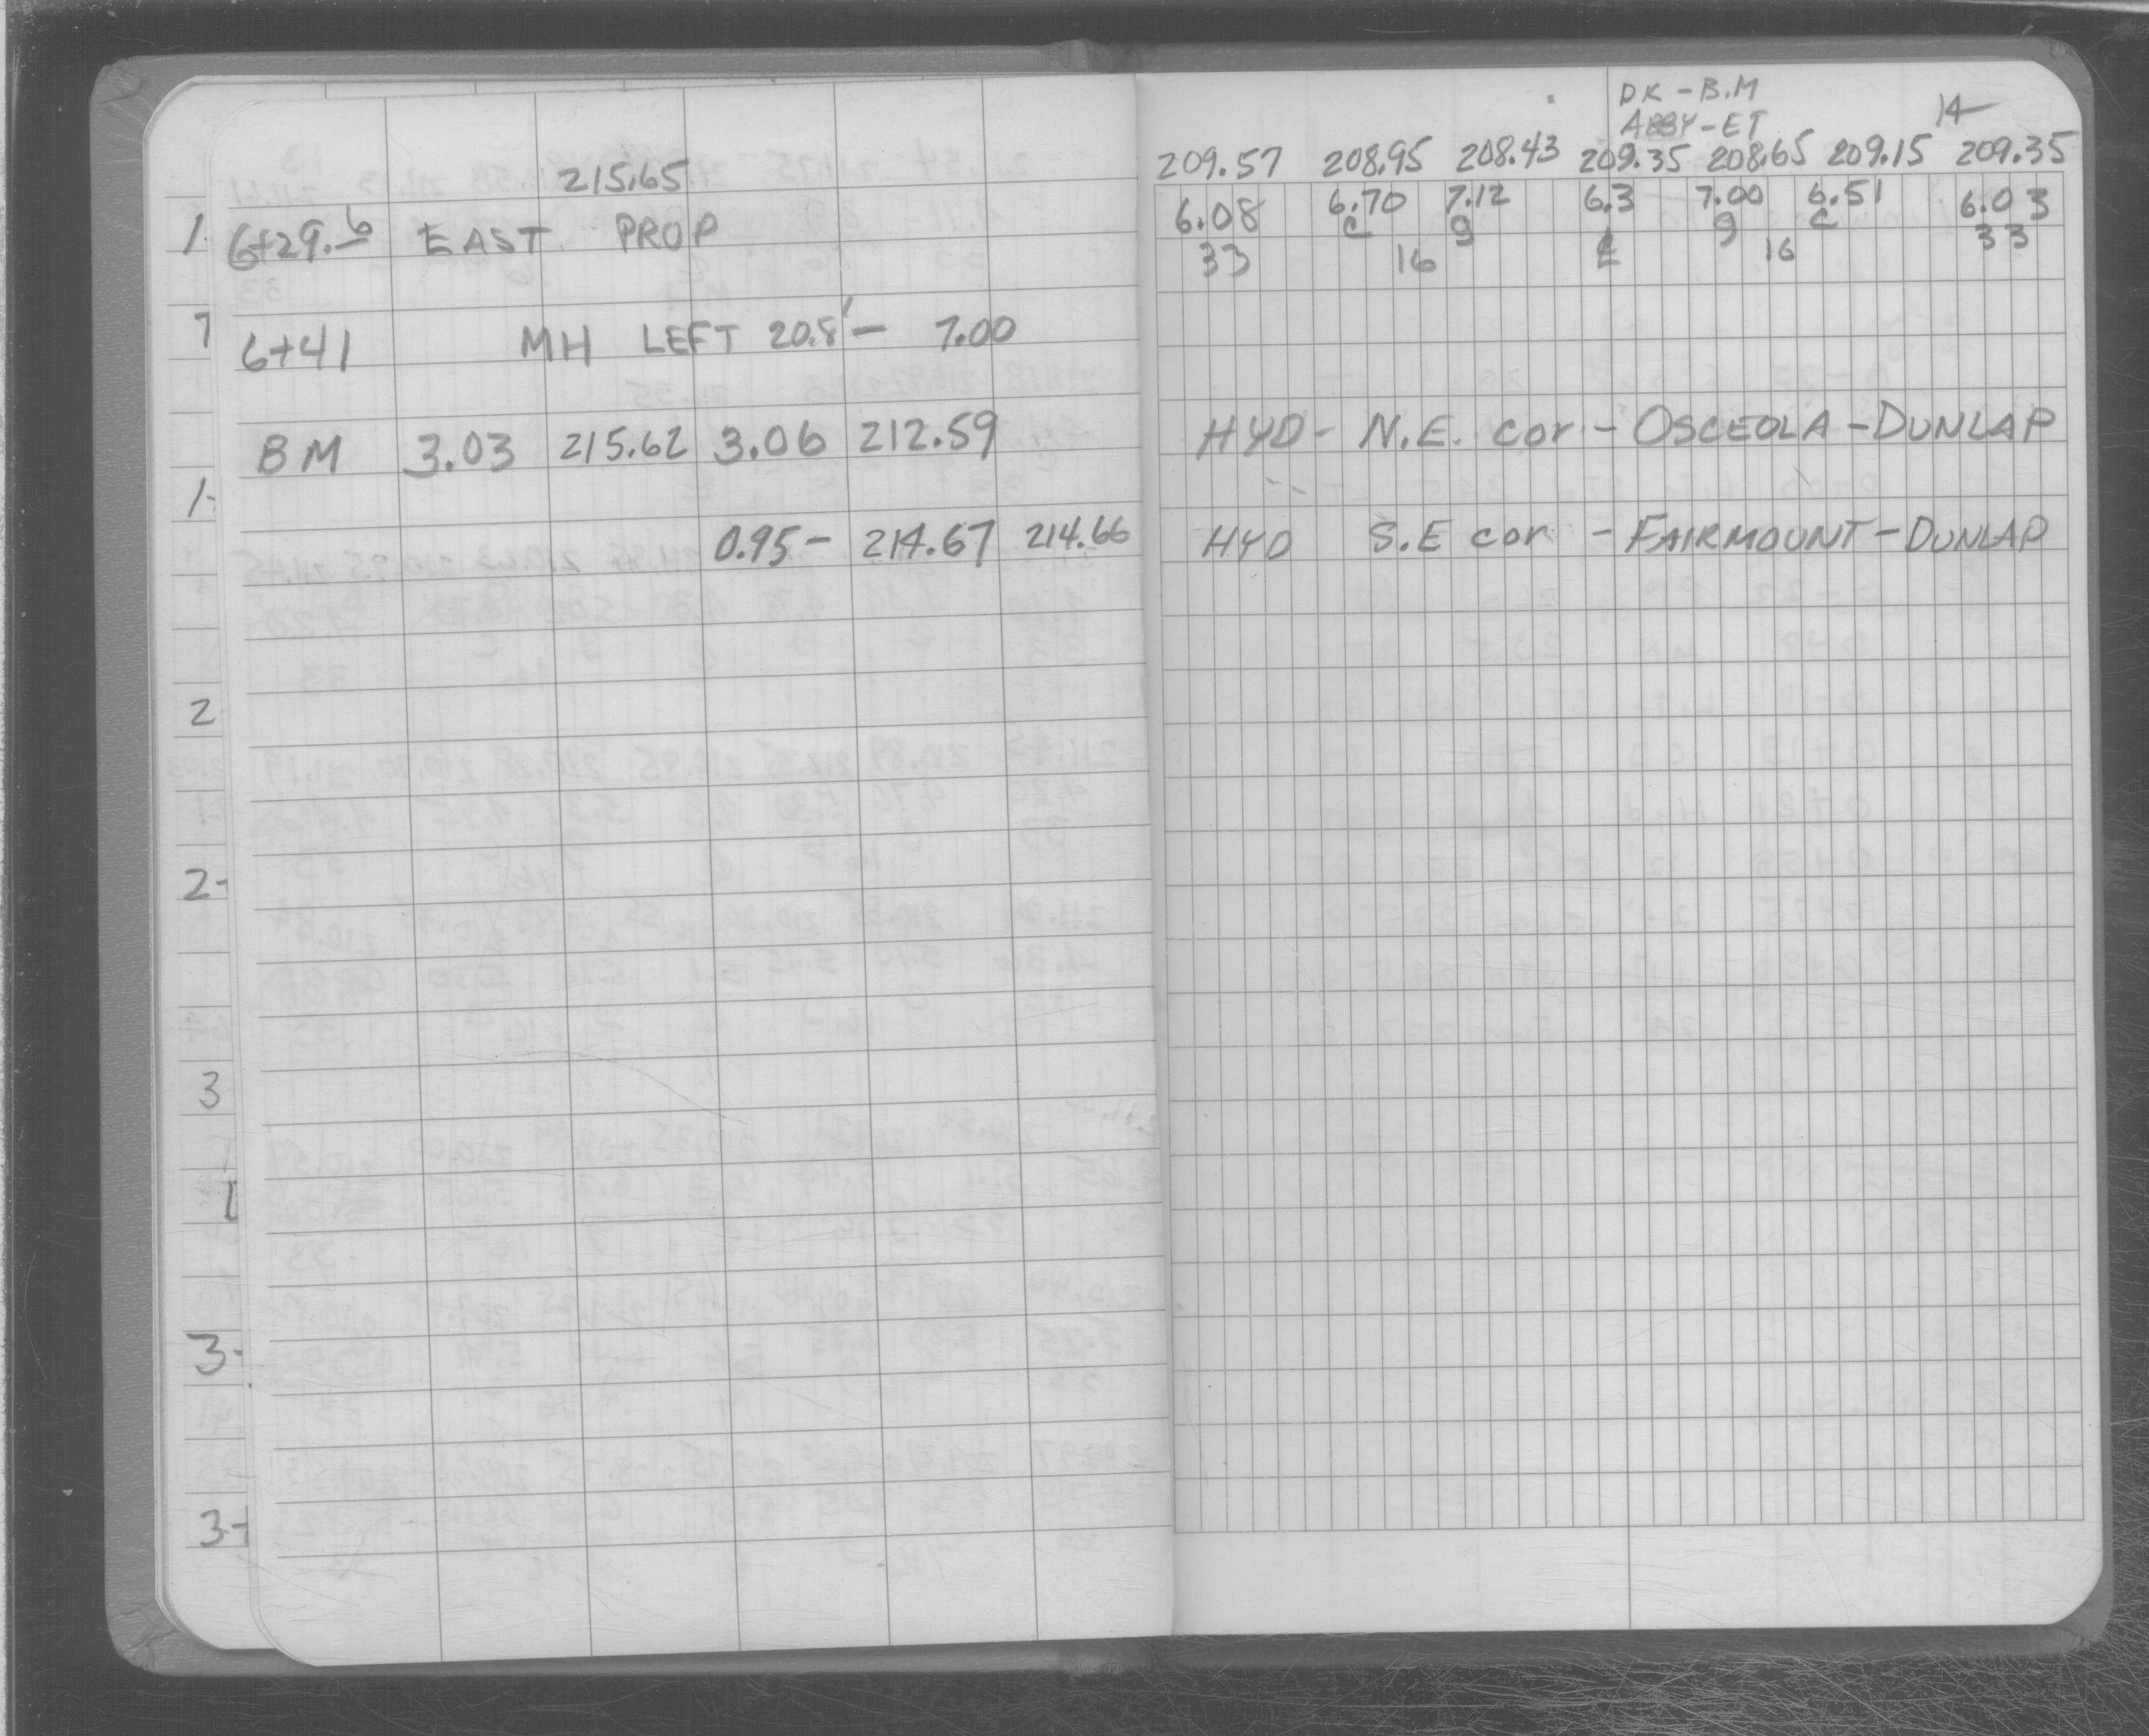 215.65
6+29.6 EAST PROP
6+41 MH LEFT 20.8' - 7.00
BM 3.03 215.62 3.06 212.59
0.95 - 214.67 214.66
1
7
1-
2
2-
3
1
3-
3+
DK - B.M
ABBY - ET
14
209.57 208.95 208.43 209.35 208.65 209.15 209.35
6.08 6.70 7.12 6.3 7.00 6.51 6.03
c g g c
33 16 ℄ 16 33
HYD - N.E. cor - OSCEOLA - DUNLAP
HYD S.E cor - FAIRMOUNT - DUNLAP